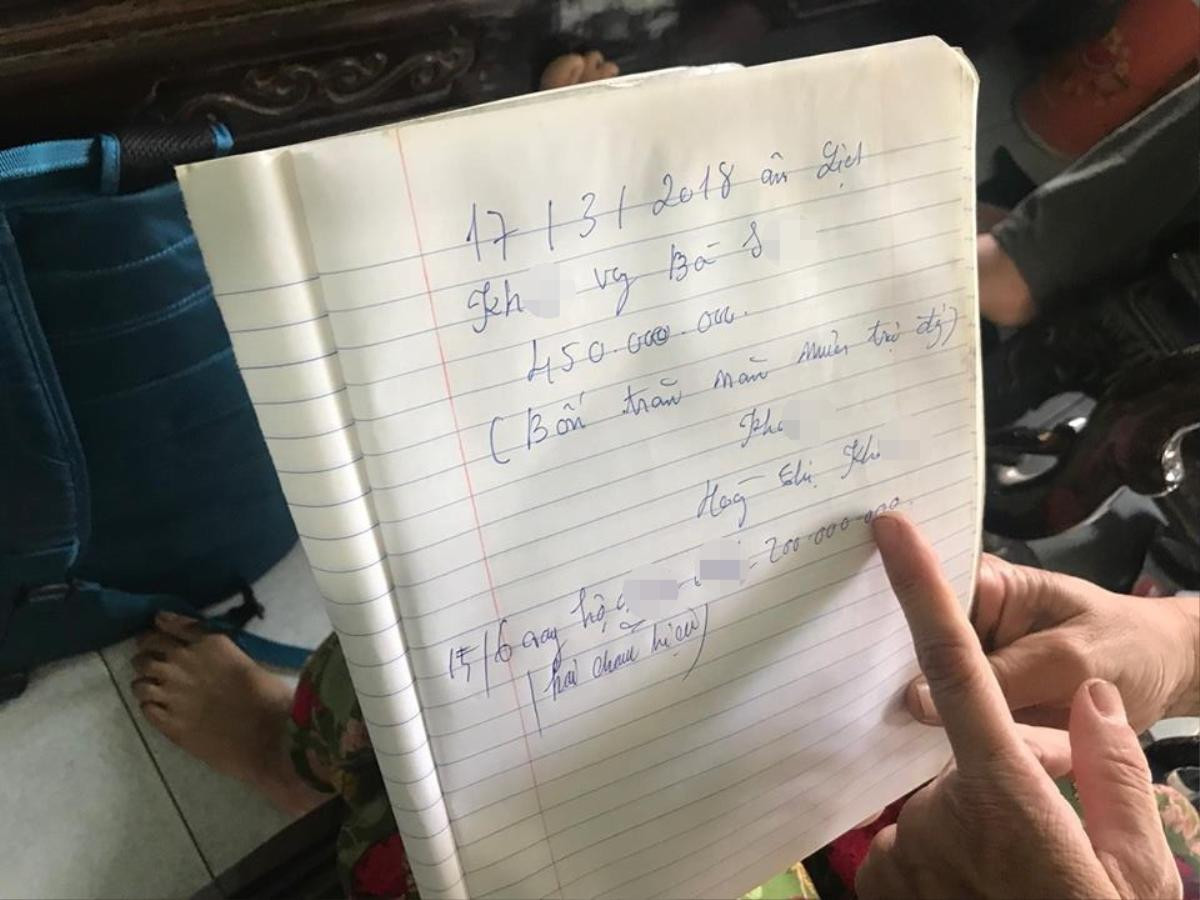 17/3/2018 âm Lịch
Kh vay Bà S
450.000.000.
(Bốn trăm năm mươi triệu đg)
Kh
Hoàng thị Kh
15/6 vay hộ 200.000.000.
(hai trăm triệu)